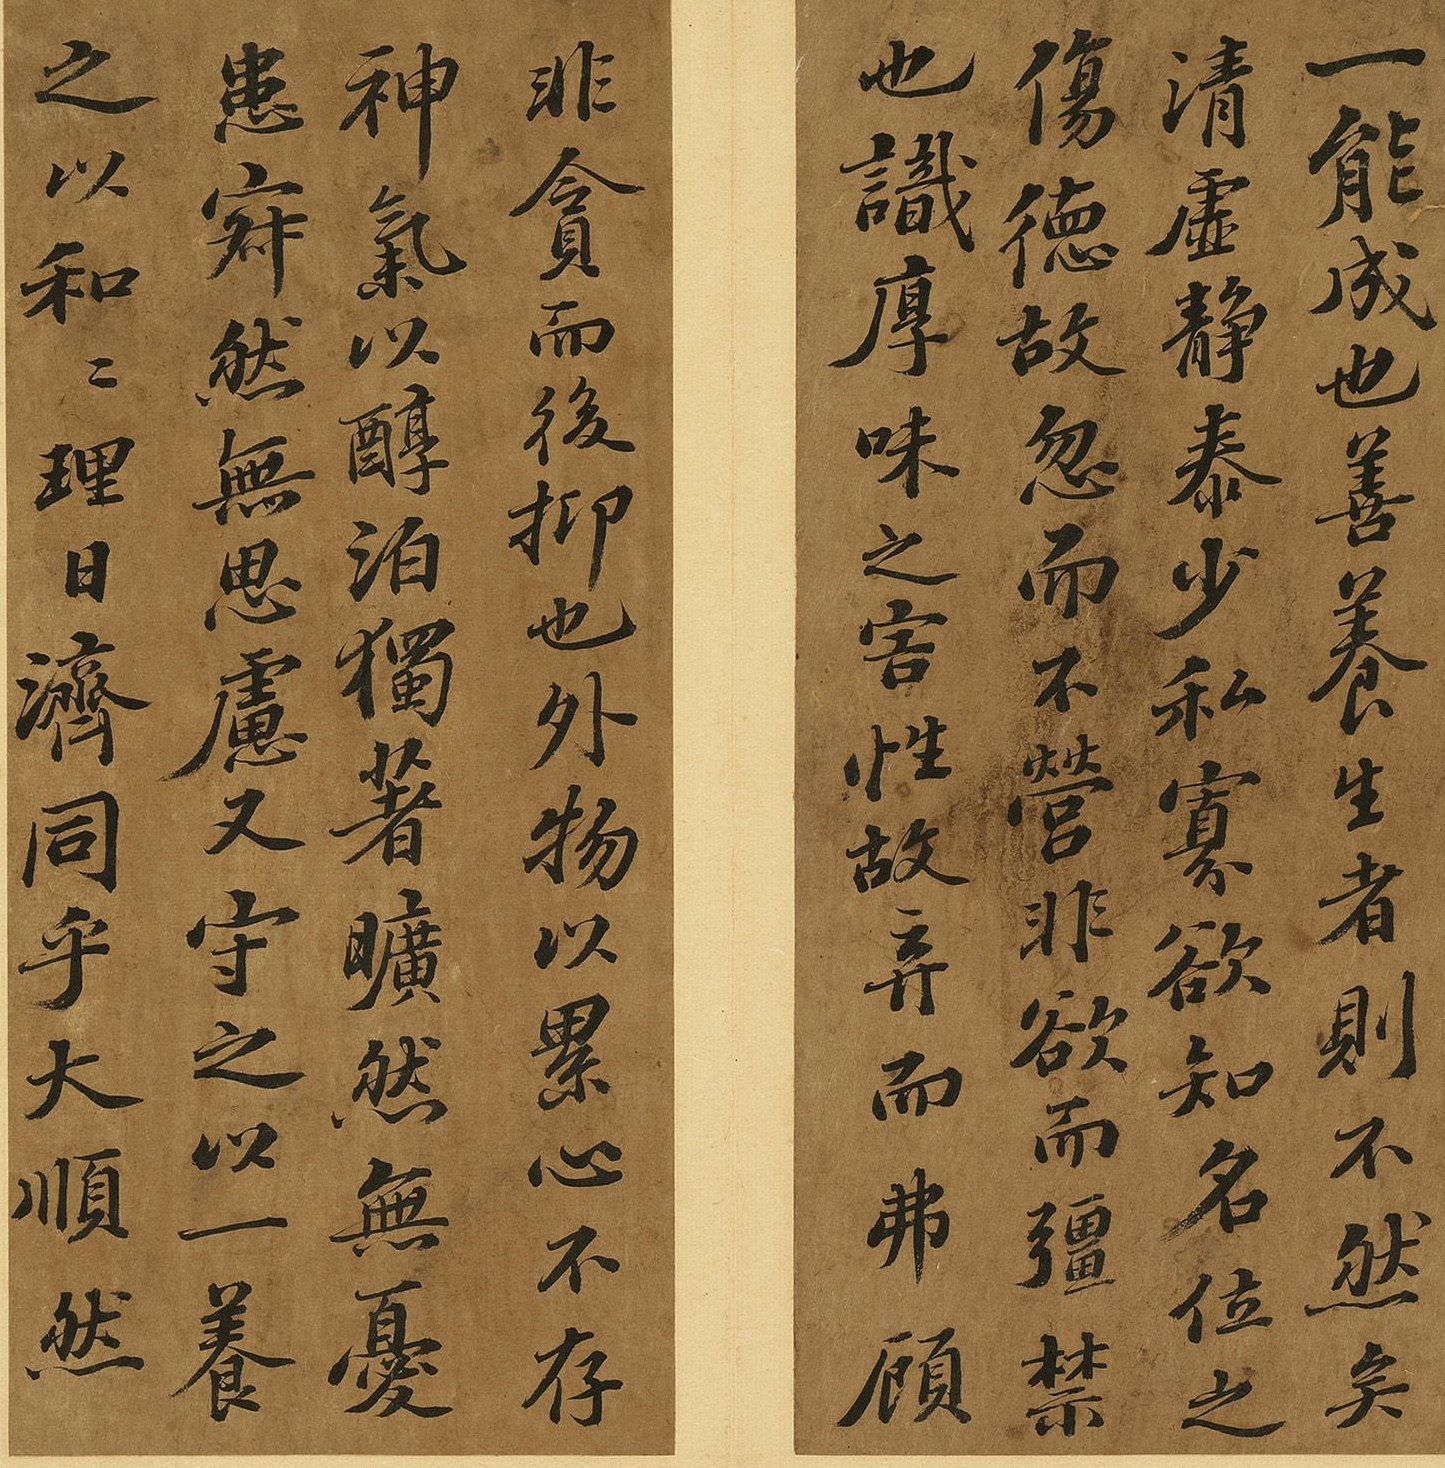 一能成也善養生者則不然矣
清虛靜泰少私寡欲知名位之
傷德故忽而不營非欲而彊禁
也識厚味之害性故弃而弗顧
非貪而後抑也外物以累心不存
神氣以醇泊獨著曠然無憂
患寂然無思慮又守之以一養
之以和〻理日濟同乎大順然